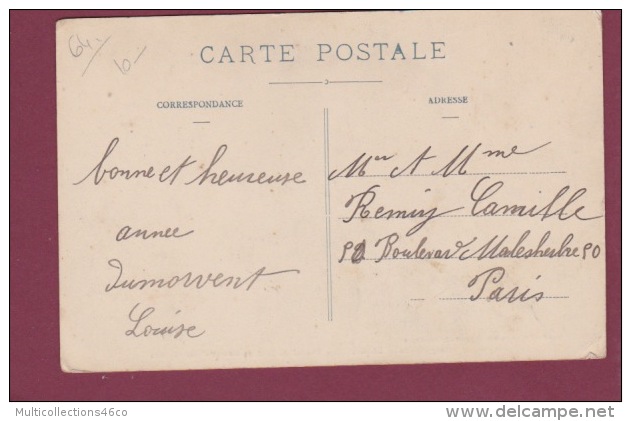 64-
6-
CARTE POSTALE
CORRESPONDANCE
ADRESSE
bonne et heureuse
annee
Dumorvent
Louise
Mr et Mme
Remiy Camille
90 Boulevard Malesherbe 90
Paris
Multicollections46co
www.delcampe.net